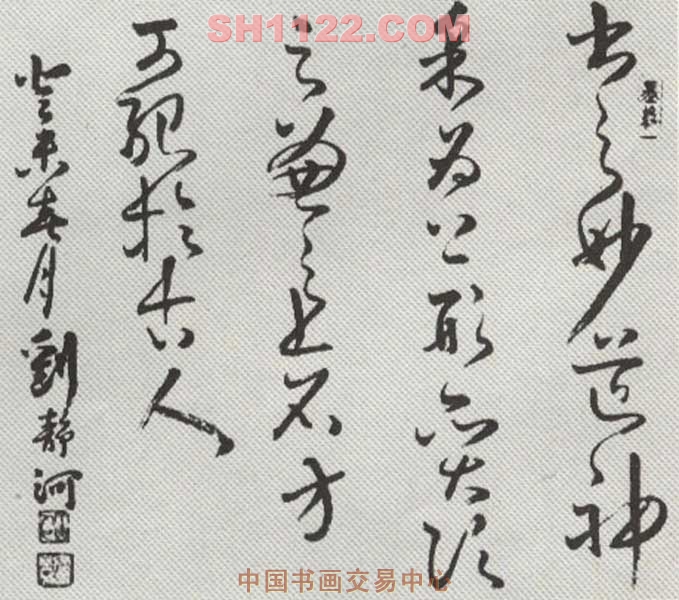 SH1122.COM
書之妙道神
采為上形質次
之兼之者方
可紹於古人
癸未春月劉靜河
中国书画交易中心